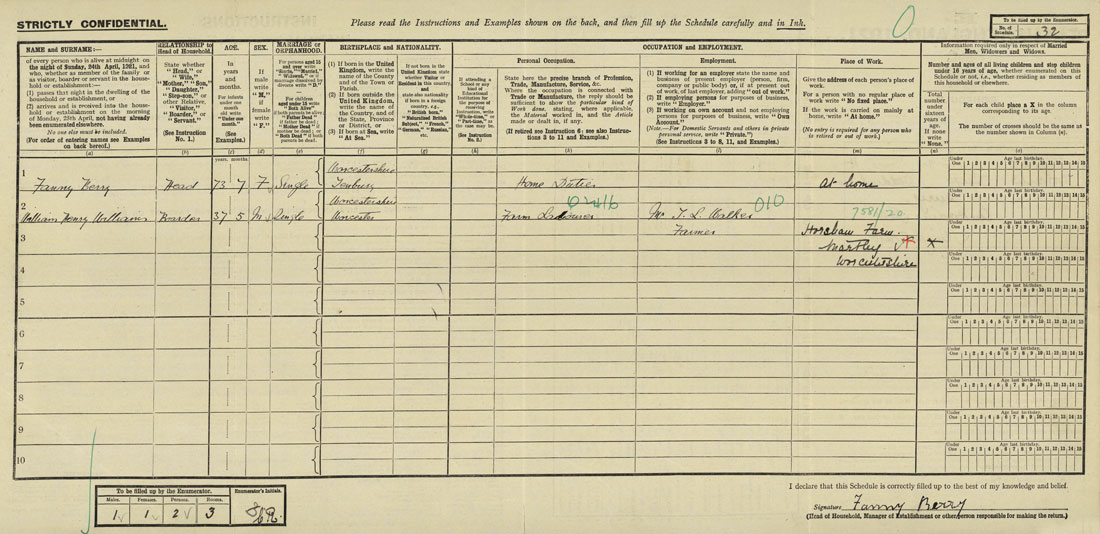 STRICTLY CONFIDENTIAL.
Please read the Instructions and Examples shown on the back, and then fill up the Schedule carefully and in Ink.
To be filled up by the Enumerator.
No. of Schedule. 32
NAME and SURNAME:—
of every person who is alive at midnight on
the night of Sunday, 24th April, 1921, and
who, whether as member of the family or
as visitor, boarder or servant in the house-
hold or establishment:—
(1) passes that night in the dwelling of the
household or establishment, or
(2) arrives and is received into the house-
hold or establishment on the morning
of Monday, 25th April, not having already
been enumerated elsewhere.
No one else must be included.
(For order of entering names see Examples
on back hereof.)
(a)
RELATIONSHIP to
Head of Household.
State whether
"Head," or
"Wife,"
"Mother," "Son,"
"Daughter,"
"Step-son," or
other Relative,
"Visitor,"
"Boarder," or
"Servant."
(See Instruction
No. 1.)
(b)
AGE.
In
years
and
months.
For infants
under one
month
old write
"Under one
month."
(See
Examples.)
(c)
SEX.
If
male
write
"M.";
if
female
write
"F."
(d)
MARRIAGE or
ORPHANHOOD.
For persons aged 15
and over write
"Single," "Married,"
"Widowed," or if
marriage dissolved by
divorce write "D."
For children
aged under 15 write
if both parents alive
"Both Alive"
if father dead
"Father Dead"
if mother dead
"Mother Dead"
if both parents dead
"Both Dead"
(e)
BIRTHPLACE and NATIONALITY.
(1) If born in the United
Kingdom, write the
name of the County
and of the Town or
Parish.
(2) If born outside the
United Kingdom,
write the name of
the Country, and of
the State, Province
or District, or
(3) If born at Sea, write
"At Sea."
(f)
If not born in the
United Kingdom
state whether
Visitor or
Resident in this
country
and
state also nationality
(g)
OCCUPATION and EMPLOYMENT.
Personal Occupation.
(h)
State here the precise branch of Profession,
Trade, Manufacture, Service, &c.
Where the occupation is connected with
Trade or Manufacture, the reply should be
sufficient to show the particular kind of
Work done, stating, where applicable,
the Material worked in, and the Article
made or dealt in, if any.
(If retired see Instruction 6; see also Instruc-
tions 3 to 11 and Examples.)
Employment.
(1) If working for an employer state the name and
business of present employer (person, firm,
company or public body) or, if at present out
of work, of last employer, adding "out of work."
(2) If employing persons for purposes of business,
write "Employer."
(3) If working on own account and not employing
persons for purposes of business, write "Own
Account."
(Note.—For Domestic Servants and others in private
personal service, write "Private.")
(See Instructions 3 to 8, 11, and Examples.)
(l)
Place of Work.
Give the address of each person's place of
work.
For a person with no regular place of
work write "No fixed place."
If the work is carried on mainly at
home, write "At home."
(No entry is required for any person who
is retired or out of work.)
(m)
Information required only in respect of Married
Men, Widowers and Widows.
Number and ages of all living children and step children
under 16 years of age, whether enumerated on this
Schedule or not, i.e., whether residing as members of
this household or elsewhere.
Total
number
under
sixteen
years of
age.
If none
write
"None."
(n)
For each child place a X in the column
The number of crosses should be the same as
the number shown in Column (n).
(o)
years. months.
1
Fanny Berry Head 73 7 F. Single Worcestershire Tenbury Home Duties At home
2
William Henry Williams Boarder 37 5 M. Single Worcestershire Worcester Farm Labourer Mr T. L. Walker Farmer
Horsham Farm.
Martley
Worcestershire
3
4
5
6
7
8
9
10
To be filled up by the Enumerator.
Males. Females. Persons. Rooms.
1 1 2 3
Enumerator's Initials.
I declare that this Schedule is correctly filled up to the best of my knowledge and belief.
Signature Fanny Berry
(Head of Household, Manager of Establishment or other person responsible for making the return.)